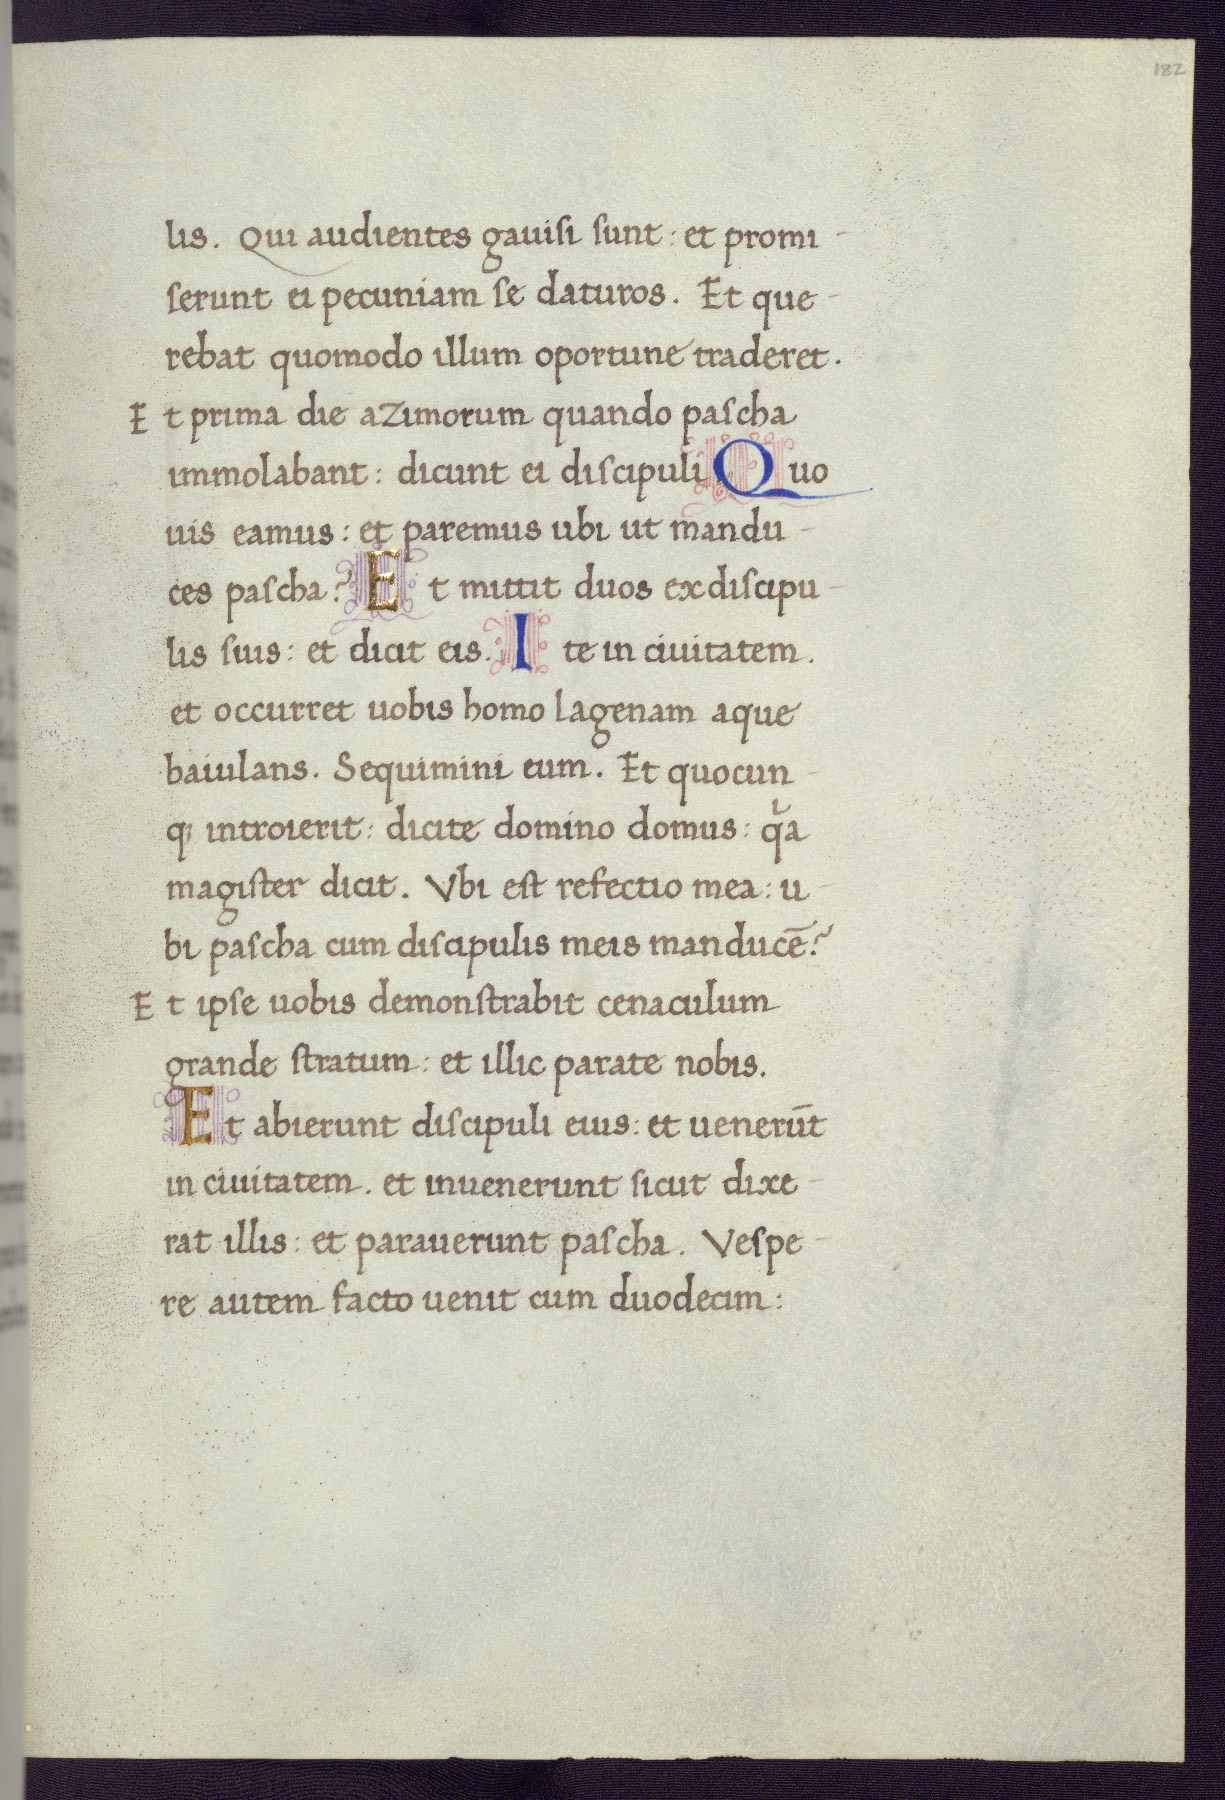 182
lis. Qui audientes gauisi sunt: et promi-
serunt ei pecuniam se daturos. Et que-
rebat quomodo illum oportune traderet.
Et prima die azimorum quando pascha
immolabant: dicunt ei discipuli Quo
uis eamus: et paremus ubi ut mandu-
ces pascha? Et mittit duos ex discipu-
lis suis: et dicit eis. Ite in ciuitatem.
et occurret uobis homo lagenam aque
baiulans. Sequimini eum. Et quocun-
qꝫ introierit: dicite domino domus: qͥa
magister dicit. Vbi est refectio mea: u-
bi pascha cum discipulis meis manducē?
Et ipse uobis demonstrabit cenaculum
grande stratum: et illic parate nobis.
Et abierunt discipuli eius: et uenerūt
in ciuitatem. et inuenerunt sicut dixe-
rat illis: et parauerunt pascha. Vespe-
re autem facto uenit cum duodecim: